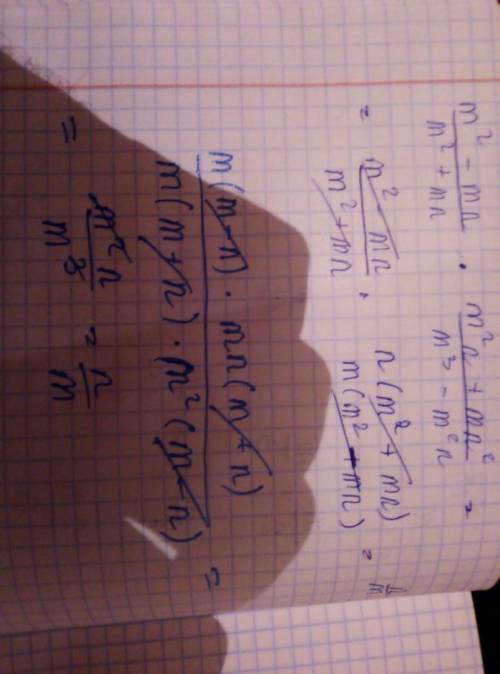 m² - mn / m² + mn · m²n + mn² / m³ - m²n =
= m² - mn / m² + mn · n(m² + mn) / m(m² + mn) =
m(m - n) · mn(m + n) / m(m + n) · m²(m - n) =
= m²n / m³ = n / m